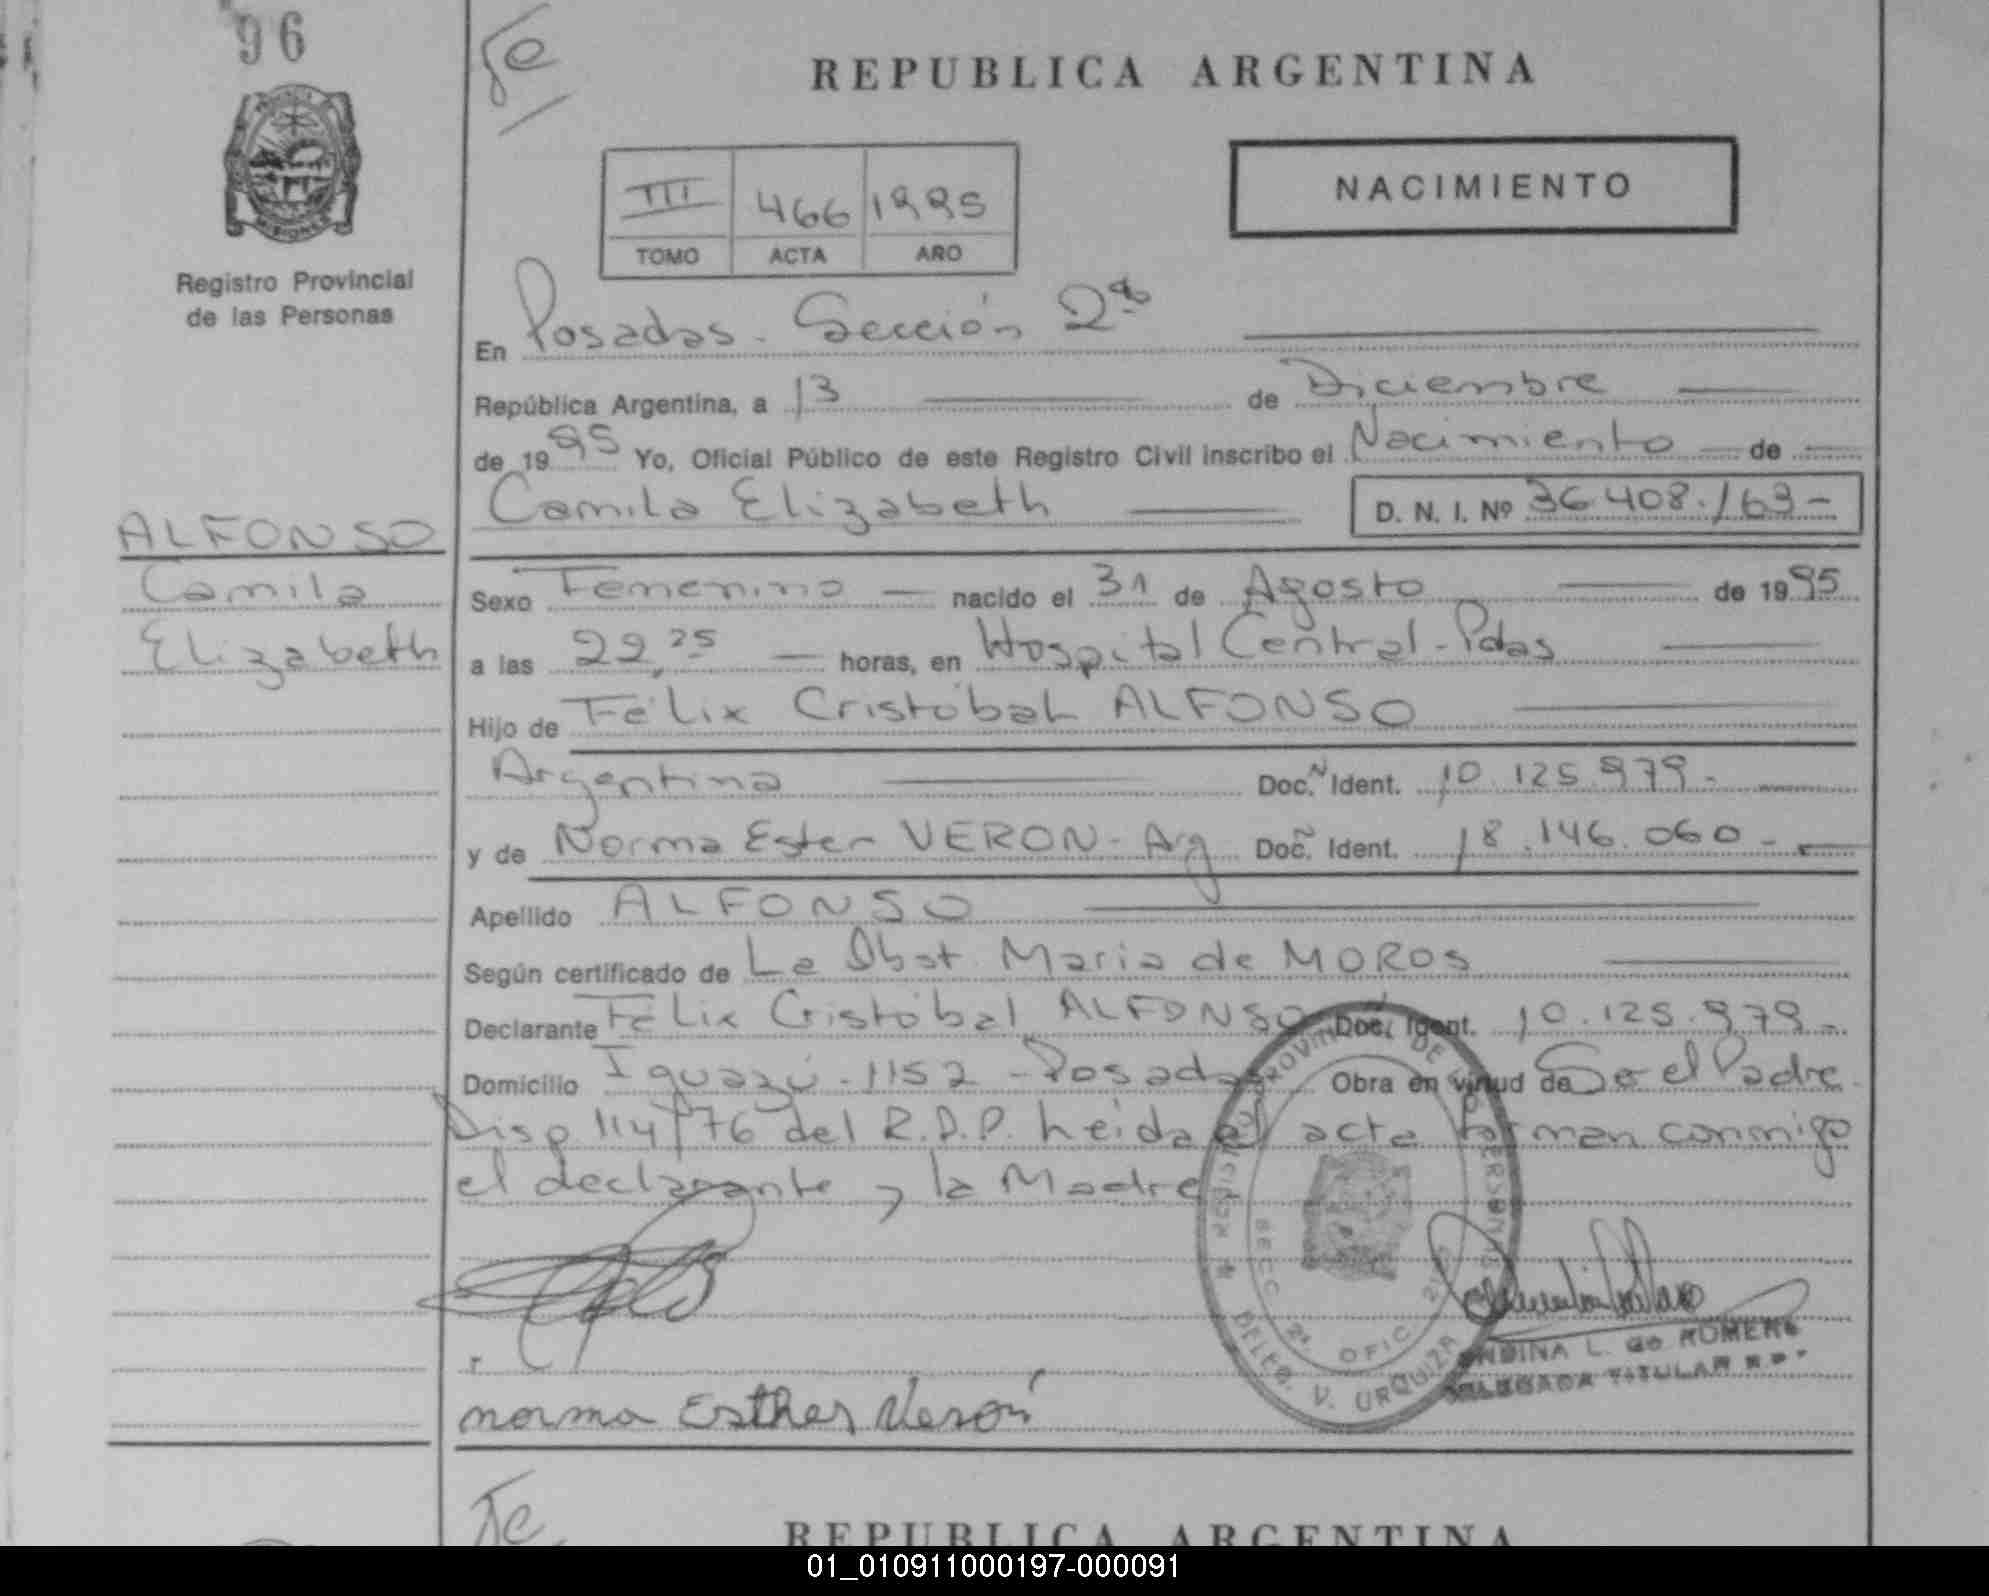 96
REPUBLICA ARGENTINA
NACIMIENTO
III 466 1995
TOMO ACTA AÑO
Registro Provincial
de las Personas
En Posadas - Sección 2ª
República Argentina, a 13 de Diciembre
de 1995 Yo, Oficial Público de este Registro Civil inscribo el Nacimiento de
Camila Elizabeth D. N. I. Nº 36.408.163-
ALFONSO
Camila
Elizabeth
Sexo Femenino nacido el 31 de Agosto de 1995
a las 22,25 horas, en Hospital Central - Pdas
Hijo de Félix Cristóbal ALFONSO
Argentina Doc. Ident. 10.125.979-
y de Norma Ester VERON - Arg Doc. Ident. 18.146.060-
Apellido ALFONSO
Según certificado de La Obst. Maria de MOROS
Declarante Félix Cristóbal ALFONSO Doc. Ident. 10.125.979-
Domicilio Iguazú - 1152 - Posadas Obra en virtud de Ser el Padre
Disp 114/76 del R.P.P. Leída el acta firman conmigo
el declarante y la Madre
norma Esther Verón
SECC 2ª OFIC
DELEG. V. URQUIZA
L. de ROMERO
DELEGADA TITULAR R.P.
REPUBLICA ARGENTINA
01_010911000197-000091